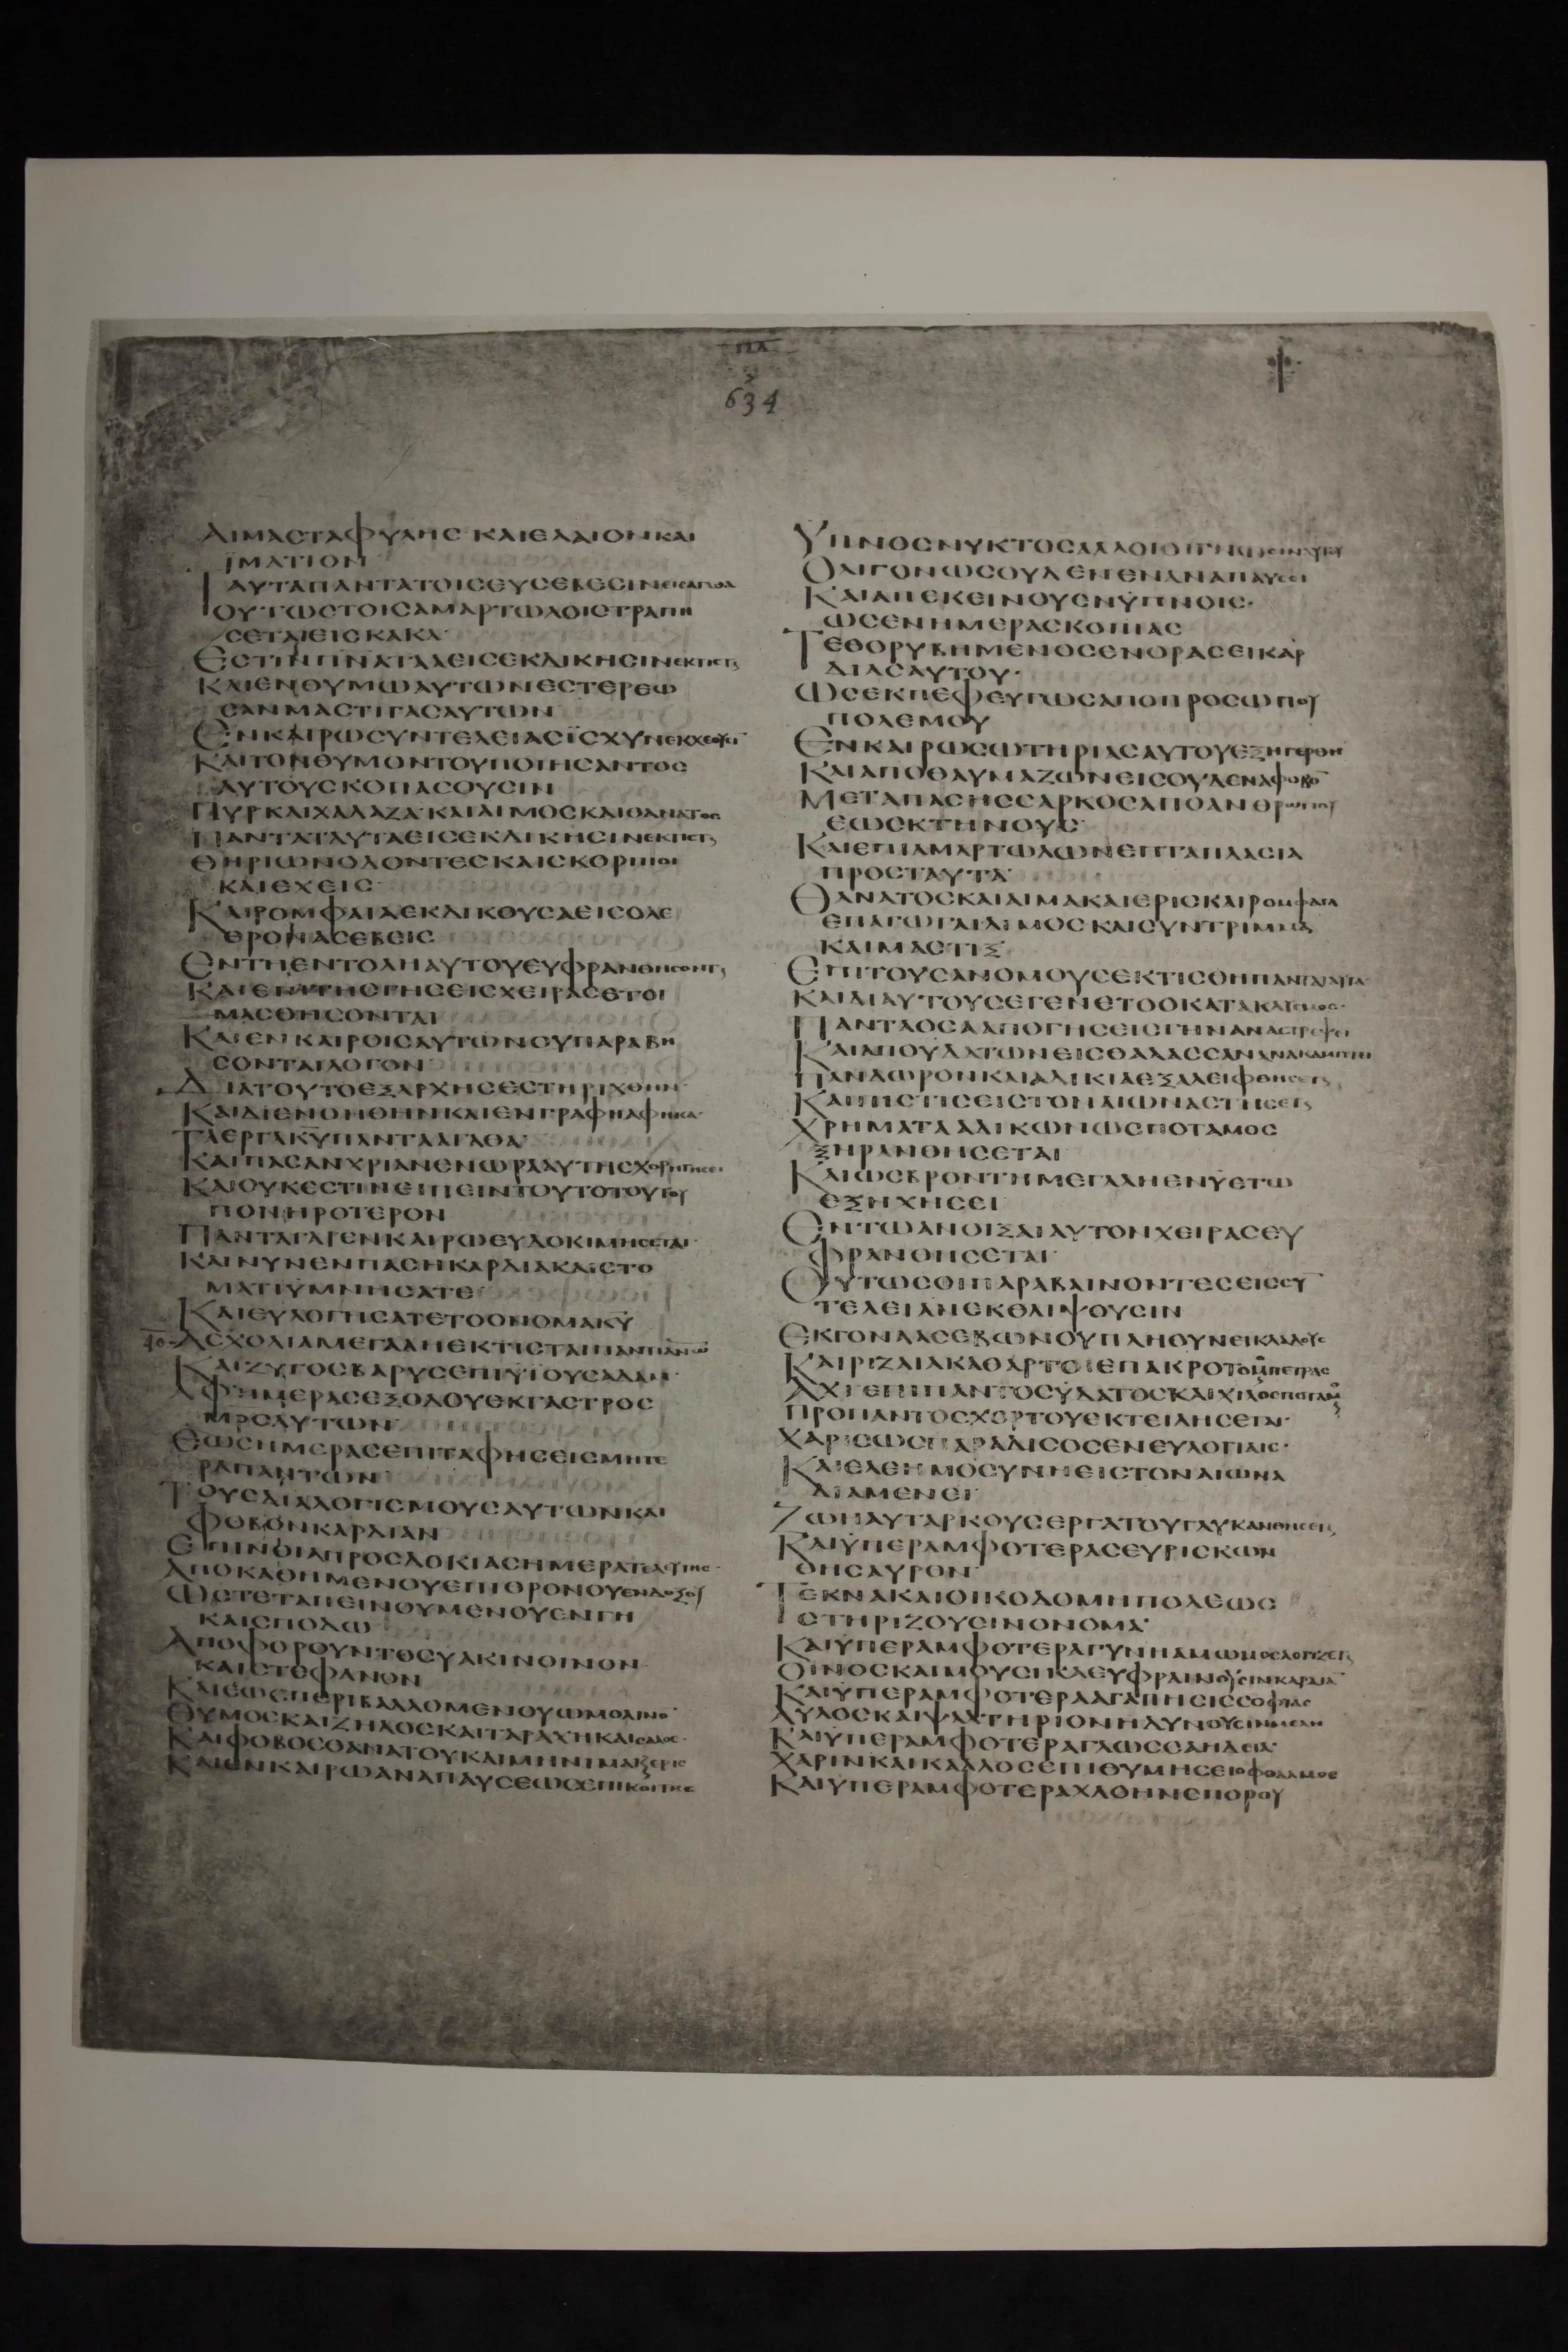 634
ΑΙΜΑCΤΑΦΥΛΗC ΚΑΙΕΛΑΙΟΝΚΑΙ
ΪΜΑΤΙΟΝ
ΤΑΥΤΑΠΑΝΤΑΤΟΙCΕΥCΕΒΕCΙΝΕΙCΑΓΑΘΑ
ΟΥΤΩCΤΟΙCΑΜΑΡΤΩΛΟΙCΤΡΑΠΗ
CΕΤΑΙΕΙCΚΑΚΑ
ΕCΤΙΝΠΝΑΤΑΑΕΙCΕΚΔΙΚΗCΙΝΕΚΤΙCΤΑΙ
ΚΑΙΕΝΘΥΜΩΑΥΤΩΝΕCΤΕΡΕΩ
CΑΝΜΑCΤΙΓΑCΑΥΤΩΝ
ΕΝΚΑΙΡΩCΥΝΤΕΛΕΙΑCΪCΧΥΝΕΚΧΕΟΥCΙ
ΚΑΙΤΟΝΘΥΜΟΝΤΟΥΠΟΙΗCΑΝΤΟC
ΑΥΤΟΥCΚΟΠΑCΟΥCΙΝ
ΠΥΡΚΑΙΧΑΛΑΖΑ·ΚΑΙΛΙΜΟCΚΑΙΘΑΝΑΤΟC
ΠΑΝΤΑΤΑΥΤΑΕΙCΕΚΔΙΚΗCΙΝΕΚΤΙCΤΑΙ
ΘΗΡΙΩΝΟΔΟΝΤΕCΚΑΙCΚΟΡΠΙΟΙ
ΚΑΙΕΧΕΙC
ΚΑΙΡΟΜΦΑΙΑΕΚΔΙΚΟΥCΑΕΙCΟΛΕ
ΘΡΟΝΑCΕΒΕΙC
ΕΝΤΗΕΝΤΟΛΗΑΥΤΟΥΕΥΦΡΑΝΘΗCΟΝΤΑΙ
ΚΑΙΕΠΙΤΗCΓΗCΕΙCΧΕΙΡΑCΕΤΟΙ
ΜΑCΘΗCΟΝΤΑΙ
ΚΑΙΕΝΚΑΙΡΟΙCΑΥΤΩΝΟΥΠΑΡΑΒΗ
CΟΝΤΑΙΛΟΓΟΝ
ΔΙΑΤΟΥΤΟΕΞΑΡΧΗCΕCΤΗΡΙΧΘΗΝ
ΚΑΙΔΙΕΝΟΗΘΗΝΚΑΙΕΝΓΡΑΦΗΑΦΗΚΑ
ΤΑΕΡΓΑΚΥΠΑΝΤΑΑΓΑΘΑ
ΚΑΙΠΑCΑΝΧΡΙΑΝΕΝΩΡΑΑΥΤΗCΧΟΡΗΓΗCΕΙ
ΚΑΙΟΥΚΕCΤΙΝΕΙΠΕΙΝΤΟΥΤΟΤΟΥΤΟΥ
ΠΟΝΗΡΟΤΕΡΟΝ
ΠΑΝΤΑΓΑΡΕΝΚΑΙΡΩΕΥΔΟΚΙΜΗCΕΤΑΙ
ΚΑΙΝΥΝΕΝΠΑCΗΚΑΡΔΙΑΚΑΙCΤΟ
ΜΑΤΙΫΜΝΗCΑΤΕ
ΚΑΙΕΥΛΟΓΗCΑΤΕΤΟΟΝΟΜΑΚΥ
40 ΑCΧΟΛΙΑΜΕΓΑΛΗΕΚΤΙCΤΑΙΠΑΝΤΙΑΝΩ
ΚΑΙΖΥΓΟCΒΑΡΥCΕΠΙΫΙΟΥCΑΔΑΜ
ΑΦΗΜΕΡΑCΕΞΟΔΟΥΕΚΓΑCΤΡΟC
ΜΡCΑΥΤΩΝ
ΕΩCΗΜΕΡΑCΕΠΙΤΑΦΗCΕΙCΜΗΤΕ
ΡΑΠΑΝΤΩΝ
ΤΟΥCΔΙΑΛΟΓΙCΜΟΥCΑΥΤΩΝΚΑΙ
ΦΟΒΟΝΚΑΡΔΙΑΝ
ΕΠΙΝΟΙΑΠΡΟCΔΟΚΙΑCΗΜΕΡΑΤΕΛΕΥΤΗC
ΑΠΟΚΑΘΗΜΕΝΟΥΕΠΙΘΡΟΝΟΥΕΝΔΟΞΟΥ
ΩCΤΕΤΑΠΕΙΝΟΥΜΕΝΟΥΕΝΓΗ
ΚΑΙCΠΟΔΩ
ΑΠΟΦΟΡΟΥΝΤΟCΥΑΚΙΝΟΙΝΟΝ
ΚΑΙCΤΕΦΑΝΟΝ
ΚΑΙΕΩCΠΕΡΙΒΑΛΛΟΜΕΝΟΥΩΜΟΛΙΝΟ
ΘΥΜΟCΚΑΙΖΗΛΟCΚΑΙΤΑΡΑΧΗΚΑΙCΑΛΟC
ΚΑΙΦΟΒΟCΘΑΝΑΤΟΥΚΑΙΜΗΝΙΜΑΚΑΙΕΡΙC
ΚΑΙΕΝΚΑΙΡΩΑΝΑΠΑΥCΕΩCΕΠΙΚΟΙΤΗC
ΥΠΝΟCΝΥΚΤΟCΑΛΛΟΙΟΙΓΝΩCΙΝΑΥΤΟΥ
ΟΛΙΓΟΝΩCΟΥΔΕΝΕΝΑΝΑΠΑΥCΕΙ
ΚΑΙΑΠΕΚΕΙΝΟΥCΝΫΠΝΟΙC·
ΩCΕΝΗΜΕΡΑCΚΟΠΙΑC
ΤΕΘΟΡΥΒΗΜΕΝΟCΕΝΟΡΑCΕΙΚΑΡ
ΔΙΑCΑΥΤΟΥ·
ΩCΕΚΠΕΦΕΥΓΩCΑΠΟΠΡΟCΩΠΟΥ
ΠΟΛΕΜΟΥ
ΕΝΚΑΙΡΩCΩΤΗΡΙΑCΑΥΤΟΥΕΞΗΓΕΡΘΗ
ΚΑΙΑΠΟΘΑΥΜΑΖΩΝΕΙCΟΥΔΕΝΑΦΟΒΟ
ΜΕΤΑΠΑCΗCCΑΡΚΟCΑΠΟΑΝΘΡΩΠΟΥ
ΕΩCΚΤΗΝΟΥC
ΚΑΙΕΠΙΑΜΑΡΤΩΛΩΝΕΠΤΑΠΛΑCΙΑ
ΠΡΟCΤΑΥΤΑ
ΘΑΝΑΤΟCΚΑΙΑΙΜΑΚΑΙΕΡΙCΚΑΙΡΟΜΦΑΙΑ
ΕΠΑΓΩΓΑΙΛΙΜΟCΚΑΙCΥΝΤΡΙΜΜΑ
ΚΑΙΜΑCΤΙΞ
ΕΠΙΤΟΥCΑΝΟΜΟΥCΕΚΤΙCΘΗΠΑΝΤΑΤΑΥΤΑ
ΚΑΙΔΙΑΥΤΟΥCΕΓΕΝΕΤΟΟΚΑΤΑΚΛΥCΜΟC
ΠΑΝΤΑΟCΑΑΠΟΓΗCΕΙCΓΗΝΑΝΑCΤΡΕΦΕΙ
ΚΑΙΑΠΟΥΔΑΤΩΝΕΙCΘΑΛΑCCΑΝΑΝΑΚΑΜΠΤΕΙ
ΠΑΝΔΩΡΟΝΚΑΙΑΔΙΚΙΑΕΞΑΛΕΙΦΘΗCΕΤΑΙ
ΚΑΙΠΙCΤΙCΕΙCΤΟΝΑΙΩΝΑCΤΗCΕΤΑΙ
ΧΡΗΜΑΤΑΑΔΙΚΩΝΩCΠΟΤΑΜΟC
ΞΗΡΑΝΘΗCΕΤΑΙ
ΚΑΙΩCΒΡΟΝΤΗΜΕΓΑΛΗΕΝΫΕΤΩ
ΕΞΗΧΗCΕΙ
ΕΝΤΩΑΝΟΙΞΑΙΑΥΤΟΝΧΕΙΡΑCΕΥ
ΦΡΑΝΘΗCΕΤΑΙ
ΟΥΤΩCΟΙΠΑΡΑΒΑΙΝΟΝΤΕCΕΙCCΥ
ΤΕΛΕΙΑΝΕΚΘΛΙΨΟΥCΙΝ
ΕΚΓΟΝΑΑCΕΒΩΝΟΥΠΛΗΘΥΝΕΙΚΛΑΔΟΥC
ΚΑΙΡΙΖΑΙΑΚΑΘΑΡΤΟΙΕΠΑΚΡΟΤΟΜΟΥΠΕΤΡΑC
ΑΧΙΕΠΙΠΑΝΤΟCΥΔΑΤΟCΚΑΙΧΙΛΟCΠΟΤΑΜΟΥ
ΠΡΟΠΑΝΤΟCΧΟΡΤΟΥΕΚΤΕΙΛΗCΕΤΑΙ·
ΧΑΡΙCΩCΠΑΡΑΔΙCΟCΕΝΕΥΛΟΓΙΑΙC·
ΚΑΙΕΛΕΗΜΟCΥΝΗΕΙCΤΟΝΑΙΩΝΑ
ΔΙΑΜΕΝΕΙ
ΖΩΗΑΥΤΑΡΚΟΥCΕΡΓΑΤΟΥΓΛΥΚΑΝΘΗCΕΤΑΙ
ΚΑΙΫΠΕΡΑΜΦΟΤΕΡΑCΕΥΡΙCΚΩΝ
ΘΗCΑΥΡΟΝ
ΤΕΚΝΑΚΑΙΟΙΚΟΔΟΜΗΠΟΛΕΩC
CΤΗΡΙΖΟΥCΙΝΟΝΟΜΑ
ΚΑΙΫΠΕΡΑΜΦΟΤΕΡΑΓΥΝΗΑΜΩΜΟCΛΟΓΙΖΕΤΑΙ
ΟΙΝΟCΚΑΙΜΟΥCΙΚΑΕΥΦΡΑΙΝΟΥCΙΝΚΑΡΔΙΑ
ΚΑΙΫΠΕΡΑΜΦΟΤΕΡΑΑΓΑΠΗCΙCCΟΦΙΑC
ΑΥΛΟCΚΑΙΨΑΛΤΗΡΙΟΝΗΔΥΝΟΥCΙΝΜΕΛΗ
ΚΑΙΫΠΕΡΑΜΦΟΤΕΡΑΓΛΩCCΑΗΔΕΙΑ
ΧΑΡΙΝΚΑΙΚΑΛΛΟCΕΠΙΘΥΜΗCΕΙΟΦΘΑΛΜΟC
ΚΑΙΫΠΕΡΑΜΦΟΤΕΡΑΧΛΟΗΝCΠΟΡΟΥ